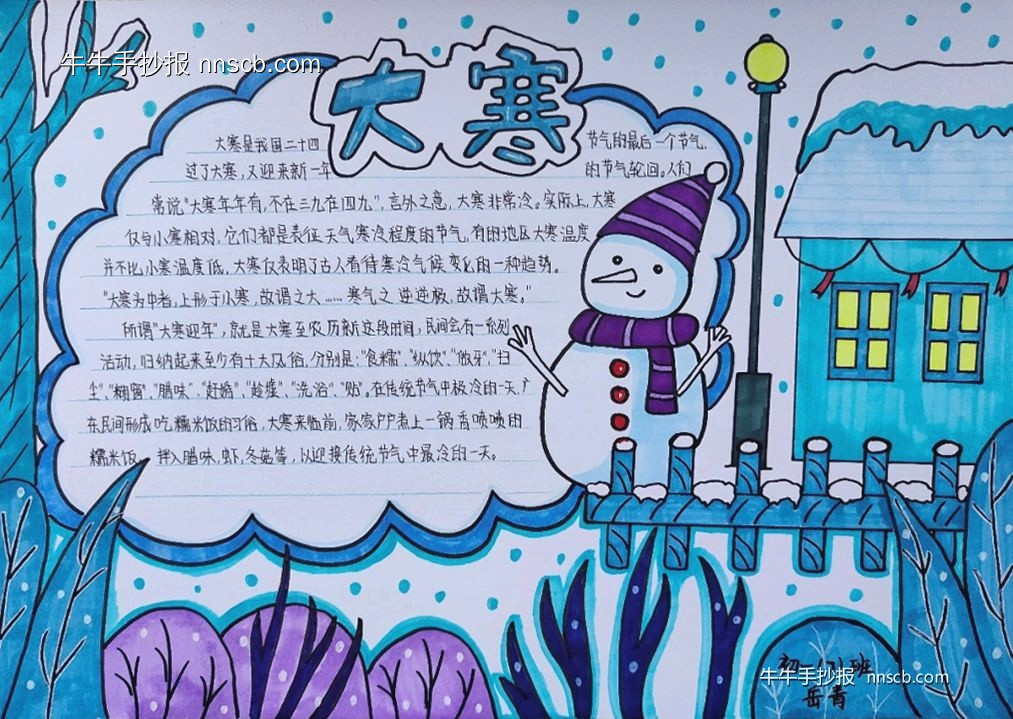 牛牛手抄报 nnscb.com
大寒
大寒是我国二十四节气的最后一个节气,
过了大寒,又迎来新一年的节气轮回。人们
常说"大寒年年有,不在三九在四九",言外之意,大寒非常冷。实际上,大寒
仅与小寒相对,它们都是表征天气寒冷程度的节气,有的地区大寒温度
并不比小寒温度低,大寒仅表明了古人看待寒冷气候变化的一种趋势。
"大寒为中者,上形于小寒,故谓之大……寒气之逆逆极,故谓大寒。"
所谓"大寒迎年",就是大寒至农历新这段时间,民间会有一系列
活动,归纳起来至少有十大风俗,分别是:"食糯"、"纵饮"、"做牙"、"扫
尘"、"糊窗"、"腊味"、"赶婚"、"趁墟"、"洗浴"、"贴"。在传统节气中极冷的一天,广
东民间形成吃糯米饭的习俗,大寒来临前,家家户户煮上一锅香喷喷的
糯米饭,拌入腊味,虾,冬菇等,以迎接传统节气中最冷的一天。
初一 班
牛牛手抄报 nnscb.com
岳青